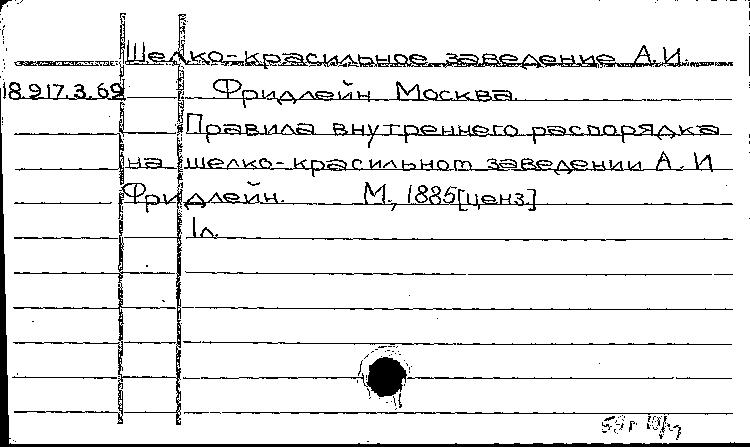 Шелко-красильное заведение А.И.
18.917.3.69 Фридлейн. Москва.
Правила внутреннего распорядка
на шелко-красильном заведении А.И
Фридлейн. М., 1885[ценз.]
1л.